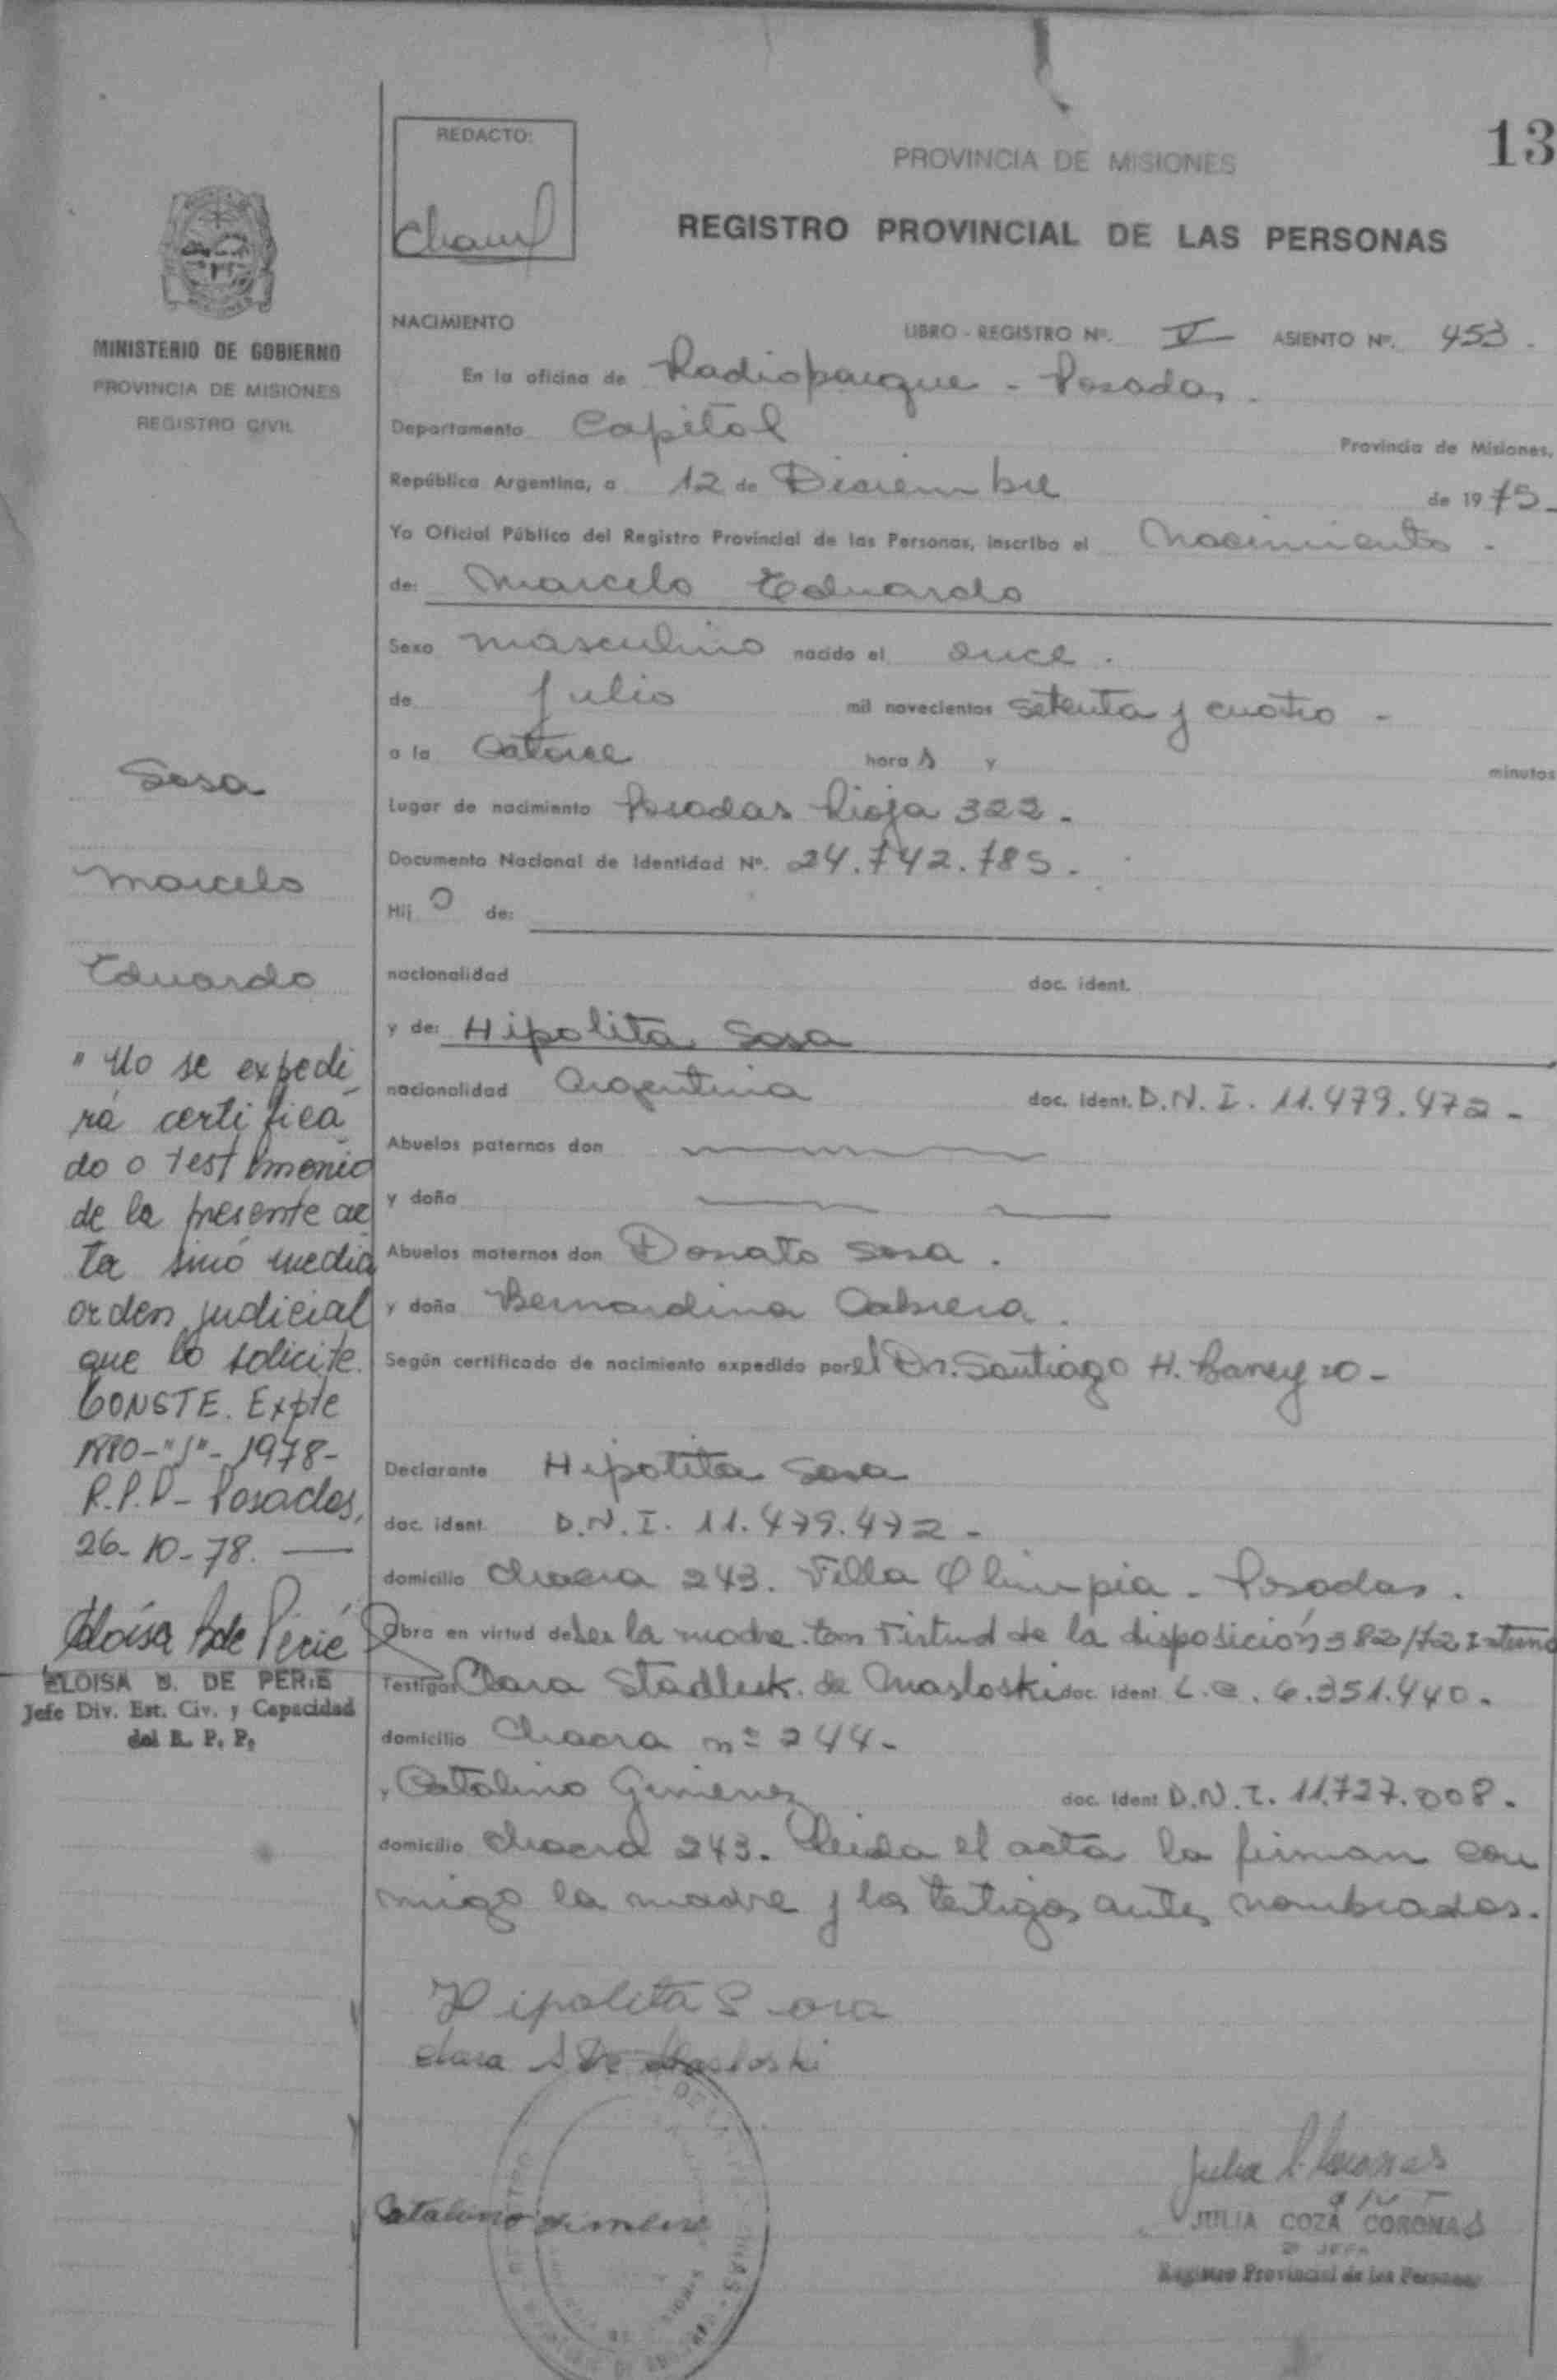 13
REDACTO:
PROVINCIA DE MISIONES
REGISTRO PROVINCIAL DE LAS PERSONAS
MINISTERIO DE GOBIERNO
PROVINCIA DE MISIONES
REGISTRO CIVIL
NACIMIENTO
LIBRO - REGISTRO Nº. V ASIENTO Nº. 453.
En la oficina de Radioparque - Posadas.
Departamento Capital
Provincia de Misiones,
República Argentina, a 12 de Diciembre de 1975-
Yo Oficial Público del Registro Provincial de las Personas, inscribo el Nacimiento.
de: Marcelo Eduardo
Sexo masculino nacido el once.
de Julio mil novecientos setenta y cuatro -
a la Catorce hora s y minutos
Lugar de nacimiento Posadas Rioja 322.-
Documento Nacional de Identidad Nº. 24.742.785.-
Hij o de:
nacionalidad doc. ident.
y de: Hipolita Sosa
nacionalidad Argentina doc. ident. D.N.I. 11.479.472-
Abuelos paternos don
y doña
Abuelos maternos don Donato Sosa.
y doña Bernardina Cabrera.
Según certificado de nacimiento expedido por el Dr. Santiago H.
Declarante Hipolita Sosa
doc. ident. D.N.I. 11.479.472-
domicilio Chacra 243. Villa Olimpia - Posadas.
Obra en virtud de ser la madre. Virtud de la disposición 382/72
Testigos Clara de Masloski doc. ident. L.C. 6.351.440.
domicilio Chacra nº 244-
y Catalino Gimenez doc. ident. D.N.I. 11.727.008.
domicilio Chacra 243. Leida el acta la firman con
migo la madre y los testigos antes nombrados.
Hipolita Sosa
Clara S de Masloski
Catalino Gimenez
JULIA COZA CORONAS
Registro Provincial de las Personas
Sosa
Marcelo
Eduardo
"No se expedi
rá certifica
do o testimonio
de la presente ac
ta sinó media
orden judicial
que lo solicite.
CONSTE. Expte
1978-
R.P.P- Posadas,
26-10-78.
ELOISA B. DE PERIE
Jefe Div. Est. Civ. y Capacidad
del R. P. P.